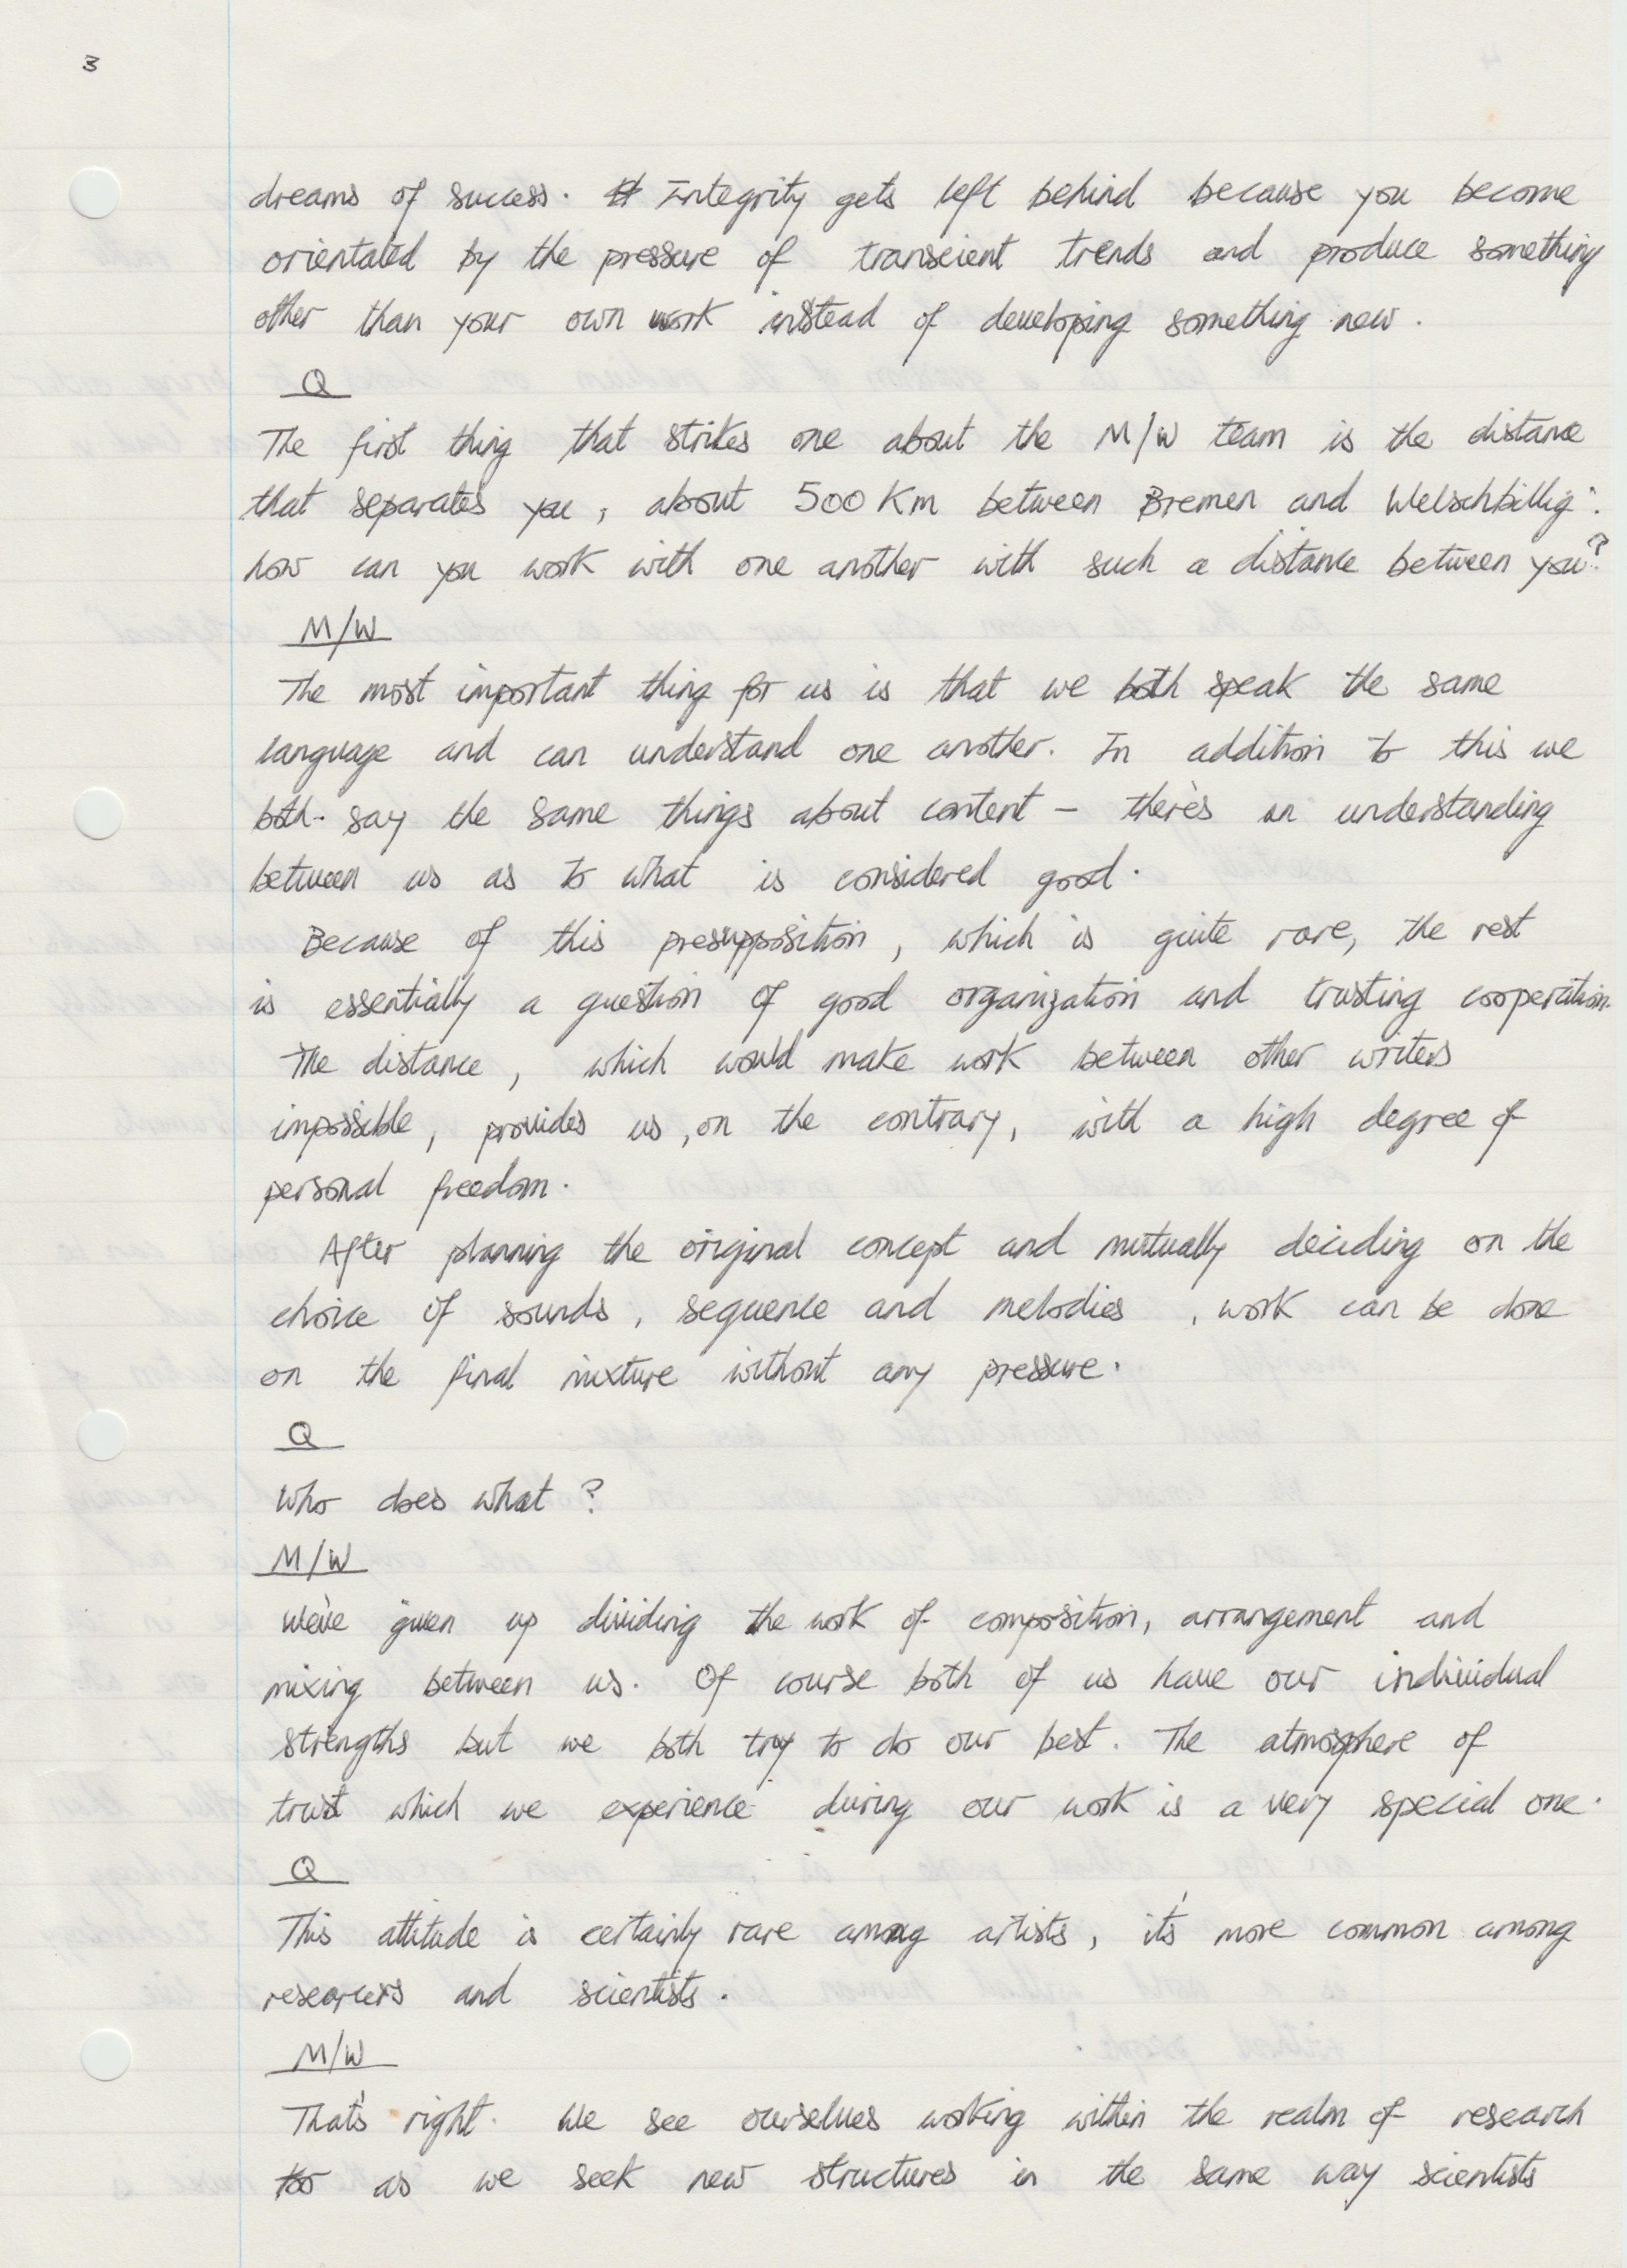 3
dreams of success. Integrity gets left behind because you become
orientated by the pressure of transcient trends and produce something
other than your own work instead of developing something new.
Q
The first thing that strikes one about the M/W team is the distance
that separates you, about 500 Km between Bremen and Welschbillig:
how can you work with one another with such a distance between you?
M/W
The most important thing for us is that we both speak the same
language and can understand one another. In addition to this we
both say the same things about content – there's an understanding
between us as to what is considered good.
Because of this presupposition, which is quite rare, the rest
is essentially a question of good organization and trusting cooperation.
The distance, which would make work between other writers
impossible, provides us, on the contrary, with a high degree of
personal freedom.
After planning the original concept and mutually deciding on the
choice of sounds, sequence and melodies, work can be done
on the final mixture without any pressure.
Q
Who does what?
M/W
We've given up dividing the work of composition, arrangement and
mixing between us. Of course both of us have our individual
strengths but we both try to do our best. The atmosphere of
trust which we experience during our work is a very special one.
Q
This attitude is certainly rare among artists, it's more common among
researcers and scientists.
M/W
That's right. We see ourselves working within the realm of research
too as we seek new structures in the same way scientists